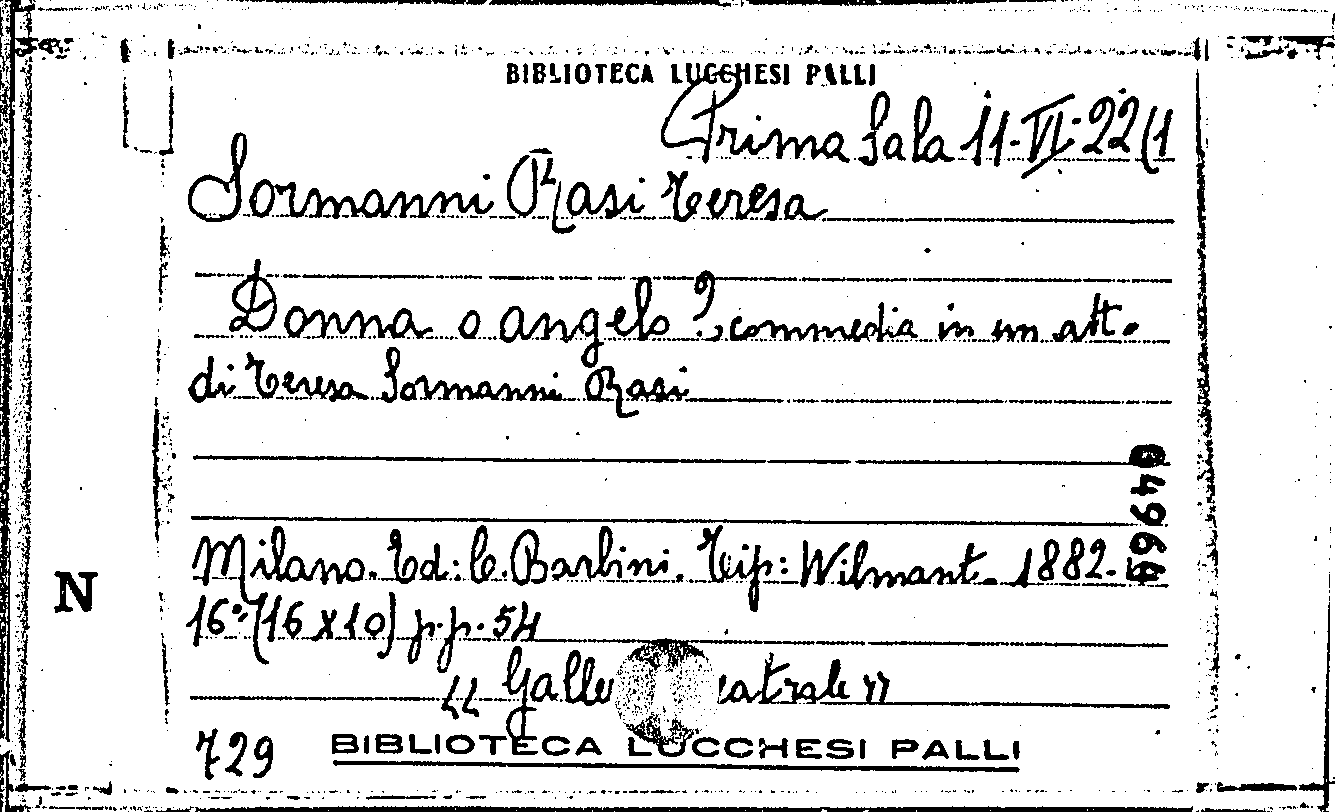 BIBLIOTECA LUCCHESI PALLI
Prima Sala 11-VI-22(1
Sormanni Rasi Teresa
Donna o angelo?, commedia in un att.
di Teresa Sormanni Rasi
49640
Milano. Ed: C. Barbini. Tip: Wilmant. 1882.
N
16º (16 x 10) p.p. 54
" Galle eatrale "
729
BIBLIOTECA LUCCHESI PALLI